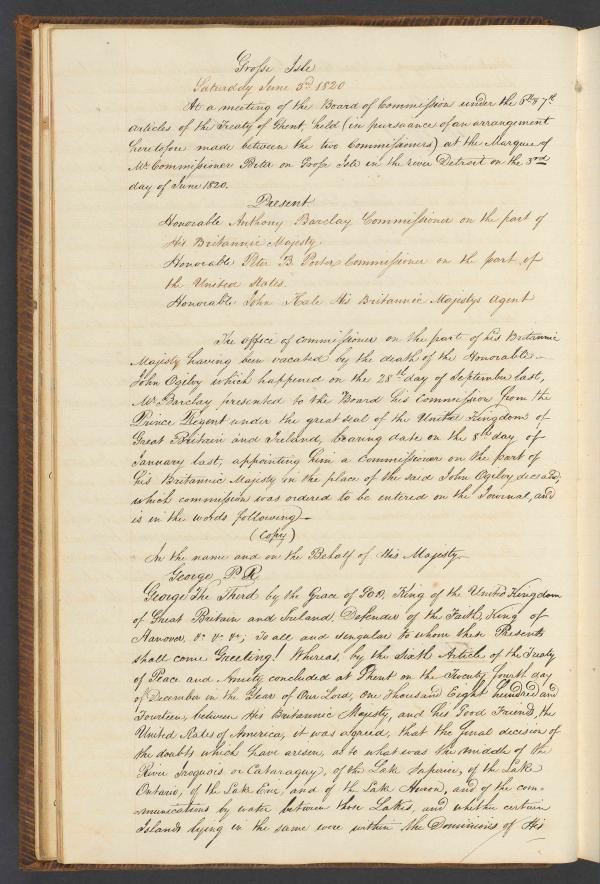 Grosse Isle
Saturday June 3.d 1820
At a meeting of the Board of Commission under the 6th & 7th
articles of the Treaty of Ghent, held (in pursuance of an arrangement
heretofore made between the two Commissioners) at the Marquee of
Mr Commissioner Porter on Grosse Isle in the river Detroit on the 3rd
day of June 1820.
Present
Honorable Anthony Barclay Commissioner on the part of
His Britannic Majesty.
Honorable Peter B. Porter Commissioner on the part of
the United States.
Honorable John Hale His Britannic Majestys Agent
The office of commissioner on the part of his Britannic
Majesty having been vacated by the death of the Honorable
John Ogilvy which happened on the 28th day of September last,
Mr Barclay presented to the Board his Commission from the
Prince Regent under the great seal of the United Kingdom of
Great Britain and Ireland, bearing date on the 8th day of
January last, appointing him a commissioner on the part of
his Britannic Majesty in the place of the said John Ogilvy
which commission was ordered to be entered on the Journal, and
is in the words following—
(Copy)
In the name and on the Behalf of His Majesty
George P R
George The Third by the Grace of GOD, King of the United Kingdom
of Great Britain and Ireland, Defender of the Faith, King of
Hanover, &c &c &c; To all and singular to whom these Presents
shall come Greeting! Whereas, by the Sixth Article of the Treaty
of Peace and Amity concluded at Ghent on the Twenty fourth day
of December in the Year of Our Lord, One Thousand Eight hundred and
Fourteen, between His Britannic Majesty, and his Good Friends, the
United States of America, it was agreed, that the final decision of
the doubts which have arisen, as to what was the middle of the
River Iroquois or Cataraguy, of the Lake Superior, of the Lake
Ontario, of the Lake Erie, and of the Lake Huron, and of the com-
munications by water between those Lakes, and whether certain
Islands lying in the same were within the Dominions of His